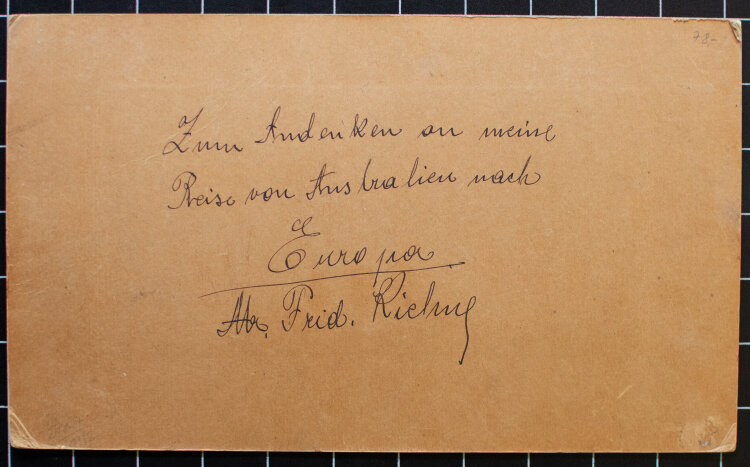 78,-
Zum Andenken an meine
Reise von Australien nach
Europa
Mr. Frid.